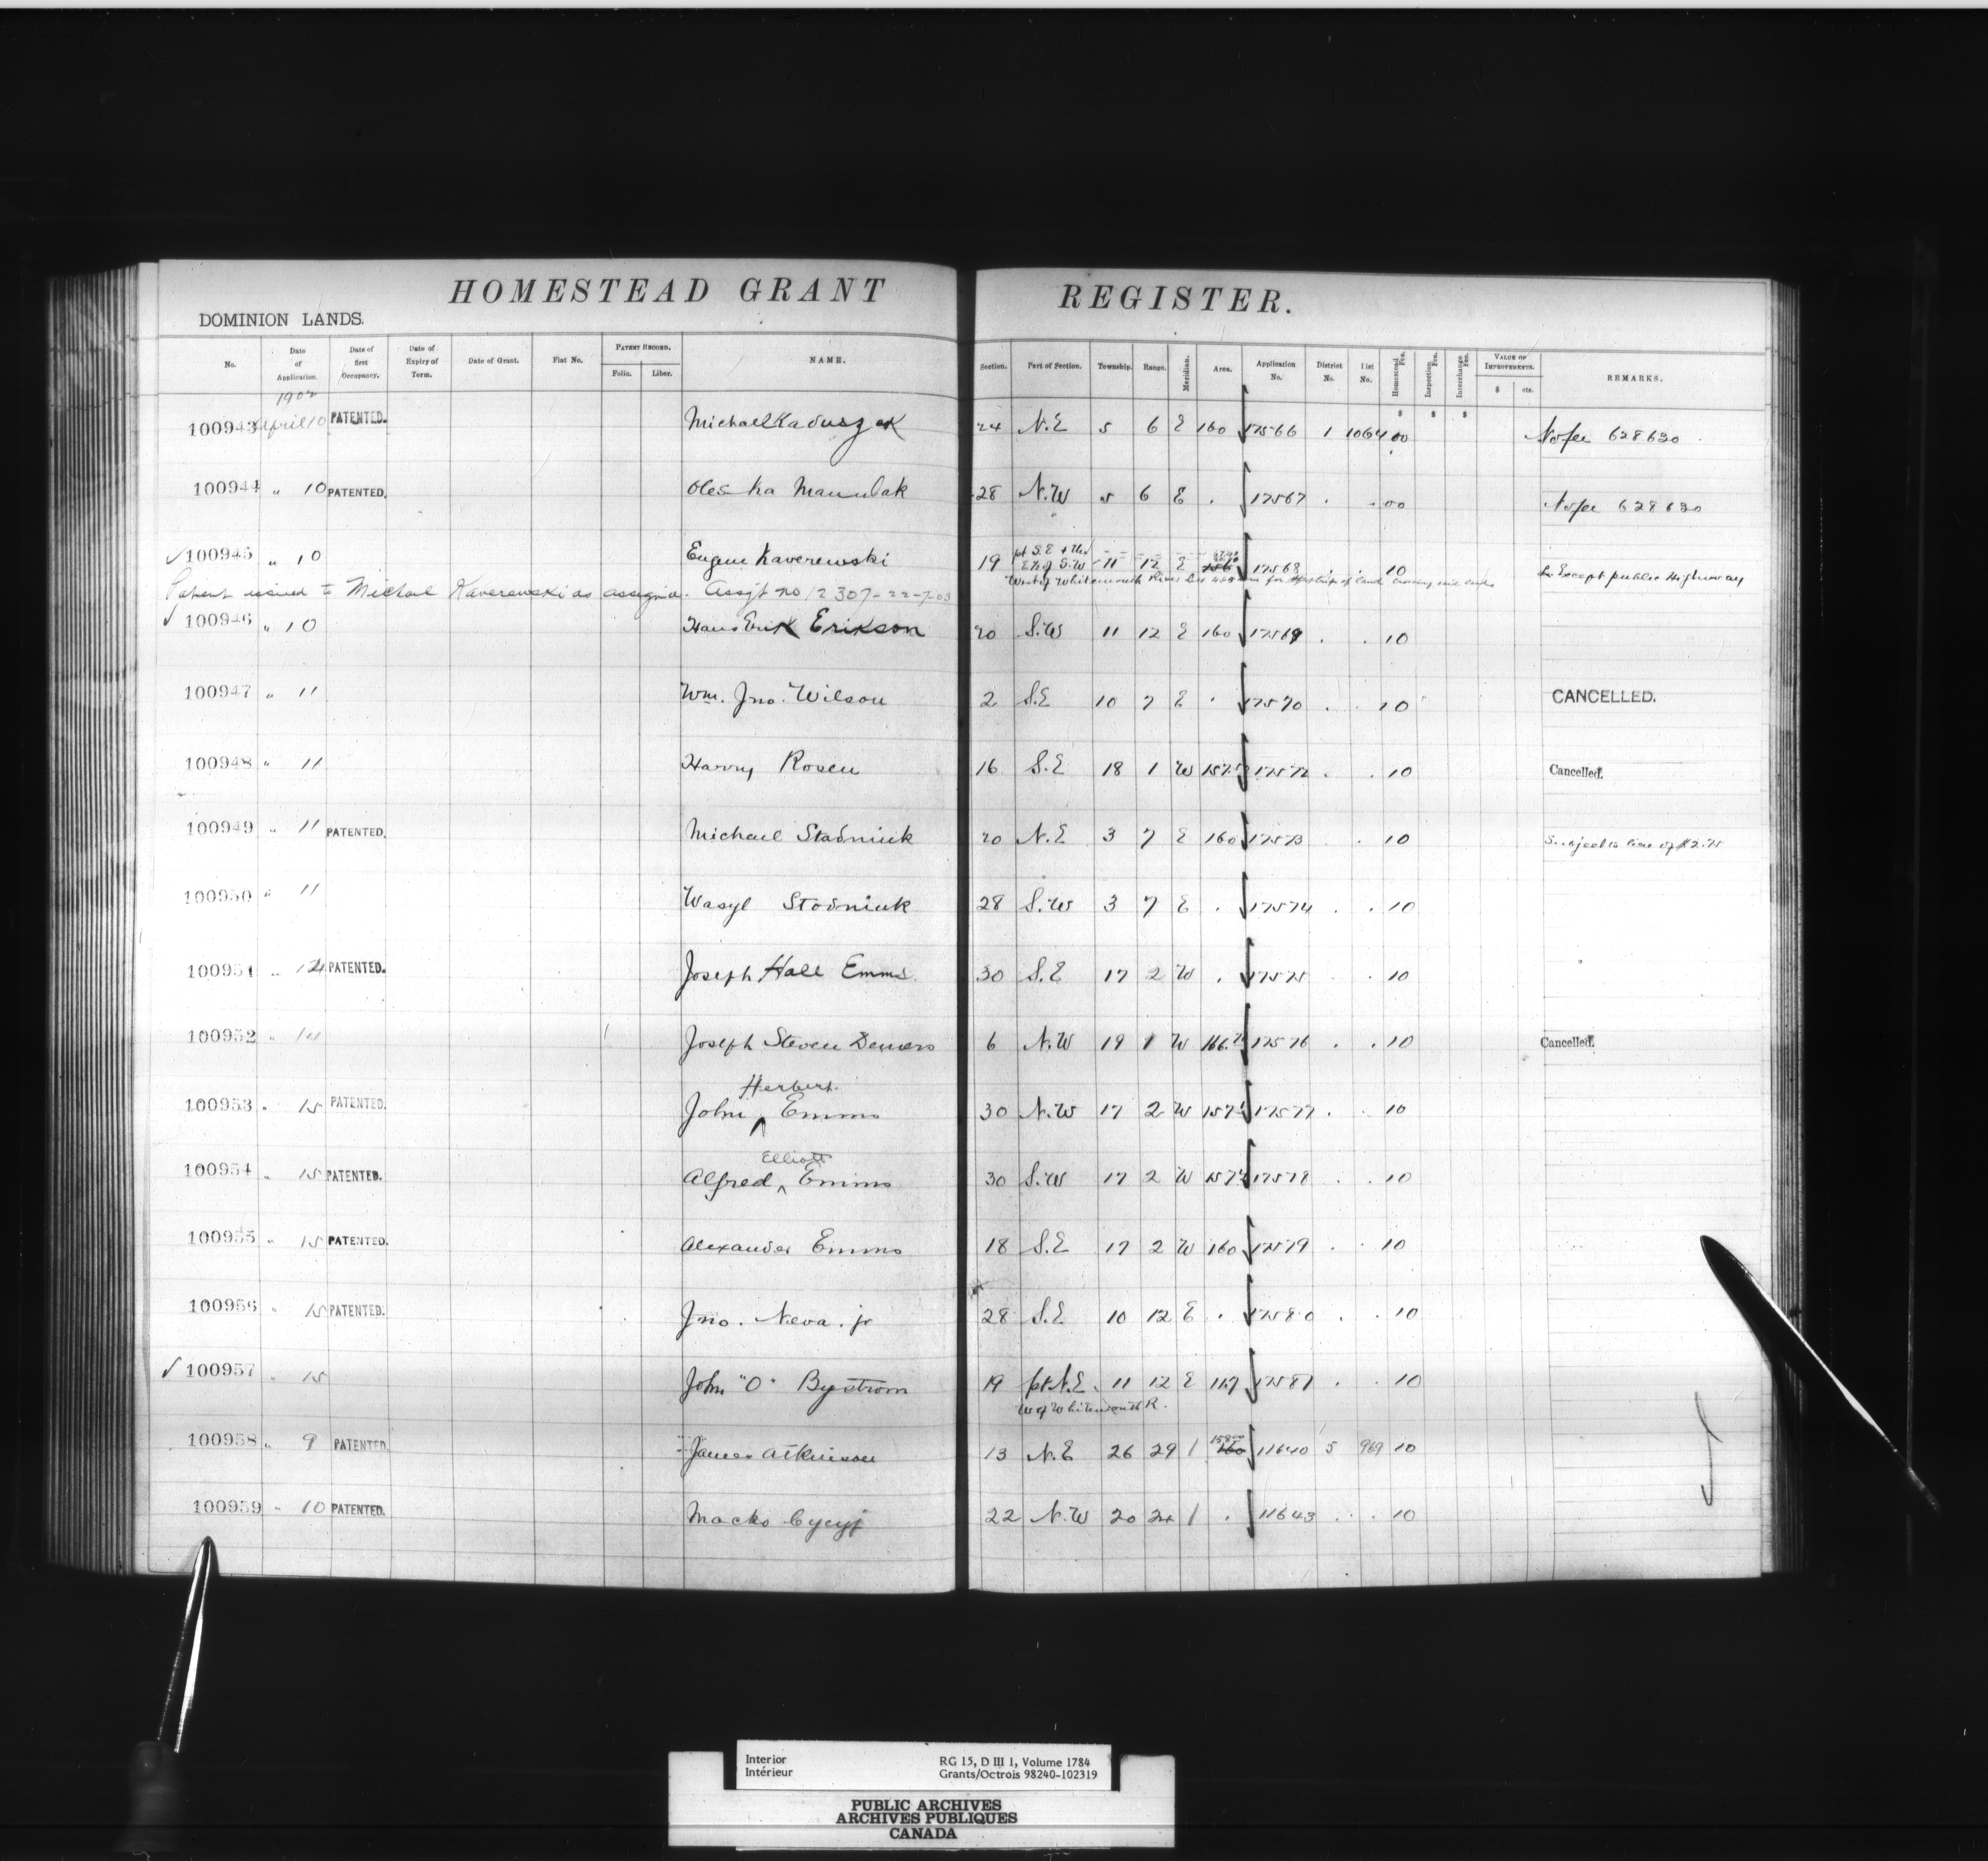 HOMESTEAD GRANT REGISTER.
DOMINION LANDS.
No. Date of Application. Date of first Occupancy. Date of Expiry of Term. Date of Grant. Fiat No. PATENT RECORD. Folio. Liber. NAME. Section. Part of Section. Township. Range. Meridian. Area. Application No. District No. List No. Homestead Fee. Inspection Fee. Interchange Fee. VALUE OF IMPROVEMENTS. $ cts. REMARKS.
1902
$ $ $
100943 April 10 PATENTED. Michael Kaduszak 24 N.E 5 6 E 160 17566 1 1064 00 No fee 628630
100944 " 10 PATENTED. Oleska Manulak 28 N.W 5 6 E . 17567 . . 00 No fee 628630
100945 " 10 Eugene Kaverewski 19 pt S.E + the E½ of S.W 11 12 E 17568 . . 10 Except public Highway
West of Whitemouth River
Patent issued to Michael Kaverewski as assignee. Assgt no 12307-22-7-03
100946 " 10 Hans Erik Erikson 20 S.W 11 12 E 160 17569 . . 10
100947 " 11 Wm. Jno. Wilson 2 S.E 10 7 E . 17570 . . 10 CANCELLED.
100948 " 11 Harry Rosen 16 S.E 18 1 W 17572 . . 10 Cancelled.
100949 " 11 PATENTED. Michael Stadniuk 20 N.E 3 7 E 160 17573 . . 10 Subject to lien of $2.75
100950 " 11 Wasyl Stodniuk 28 S.W 3 7 E . 17574 . . 10
100951 " 12 PATENTED. Joseph Hall Emms 30 S.E 17 2 W . 17575 . . 10
100952 " 14 Joseph Steven Demers 6 N.W 19 1 W 17576 . . 10 Cancelled.
Herbert
100953 " 15 PATENTED. John ^ Emms 30 N.W 17 2 W 17577 . . 10
Elliott
100954 " 15 PATENTED. Alfred ^ Emms 30 S.W 17 2 W 17578 . . 10
100955 " 15 PATENTED. Alexander Emms 18 S.E 17 2 W 160 17579 . . 10
100956 " 15 PATENTED. Jno. Neva. jr 28 S.E 10 12 E . 17580 . . 10
100957 " 15 John "O" Bystrom 19 pt N.E. 11 12 E 117 17581 . . 10
W of Whitemouth R.
100958 " 9 PATENTED. James Atkinson 13 N.E 26 29 1 160 11640 5 969 10
100959 " 10 PATENTED. Macko Cycyj 22 N.W 20 24 1 . 11643 . . 10
Interior RG 15, D III 1, Volume 1784
Intérieur Grants/Octrois 98240-102319
PUBLIC ARCHIVES
ARCHIVES PUBLIQUES
CANADA